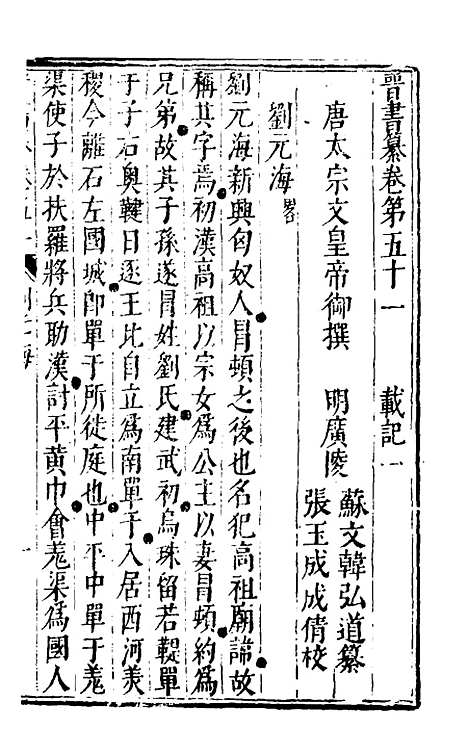 晉書纂卷第五十一　載記一
唐太宗文皇帝御撰　明廣陵
蘇文韓弘道纂
張玉成成倩校
劉元海畧
劉元海新興匈奴人冒頓之後也名犯高祖廟諱故
稱其字焉初漢高祖以宗女爲公主以妻冒頓約爲
兄弟故其子孫遂冒姓劉氏建武初烏珠留若鞮單
于子右奧鞬日逐王比自立爲南單于入居西河美
稷今離石左國城卽單于所徙庭也中平中單于羗
渠使子於扶羅將兵助漢討平黄巾會羗渠爲國人